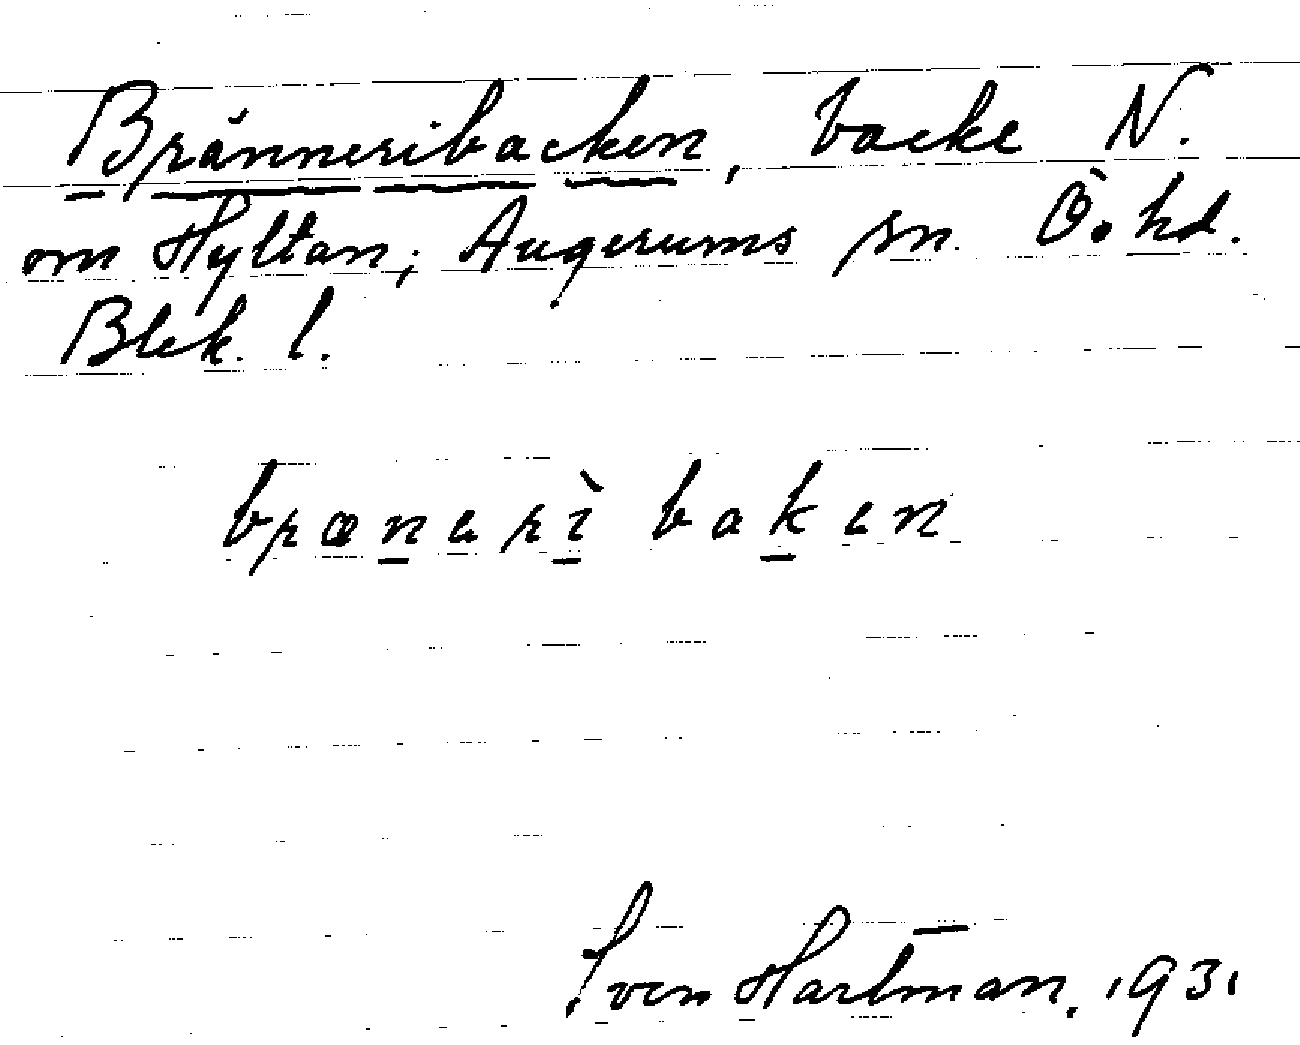 Brännericbacken, backe N.
om Hyltan, Augerums sn. Ö. hd.
Blek. l.
brænerì baken
Sven Hartman, 1931